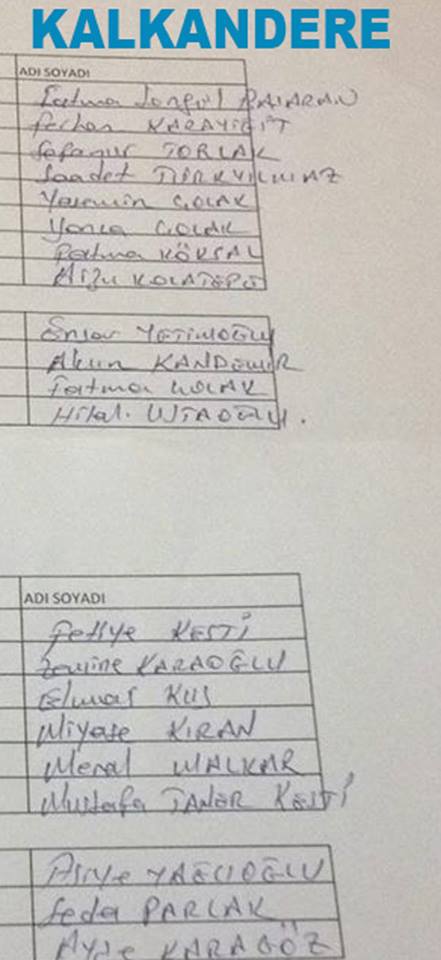 KALKANDERE
ADI SOYADI
Fatma Songül
Ferhan KARAYİĞİT
Safanur TORLAK
Saadet
Yasemin ÇOLAK
Yonca ÇOLAK
Fatma KÖKSAL
Arzu KOLATEPE
Ensar YETİMOĞLU
Akun KANDEMİR
Fatma ÇOLAK
Hilal USTAOĞLU.
ADI SOYADI
Fethiye KESTİ
Zemine KARAOĞLU
Elmas KUŞ
Miyase KIRAN
Meral MALKAR
Mustafa TANER KESTİ
Asiye YAĞCIOĞLU
Seda PARLAK
Ayşe KARAGÖZ